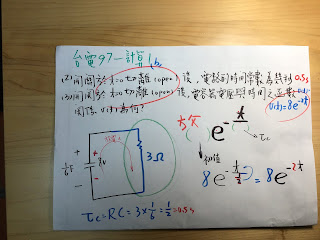 台電97-計算1b.
(2)開關於t=0切離(open)後,電路的時間常數為幾秒 0.5s
(3)開關於t=0切離(open)後,電容器電壓與時間之函數
關係 v(t)為何? v(t)=8e^-2t
e^-t/τ
τc
初值
1/6F
8V
3Ω
8e^-t/½ = 8e^-2t
τc=RC=3×1/6=1/2=0.5s